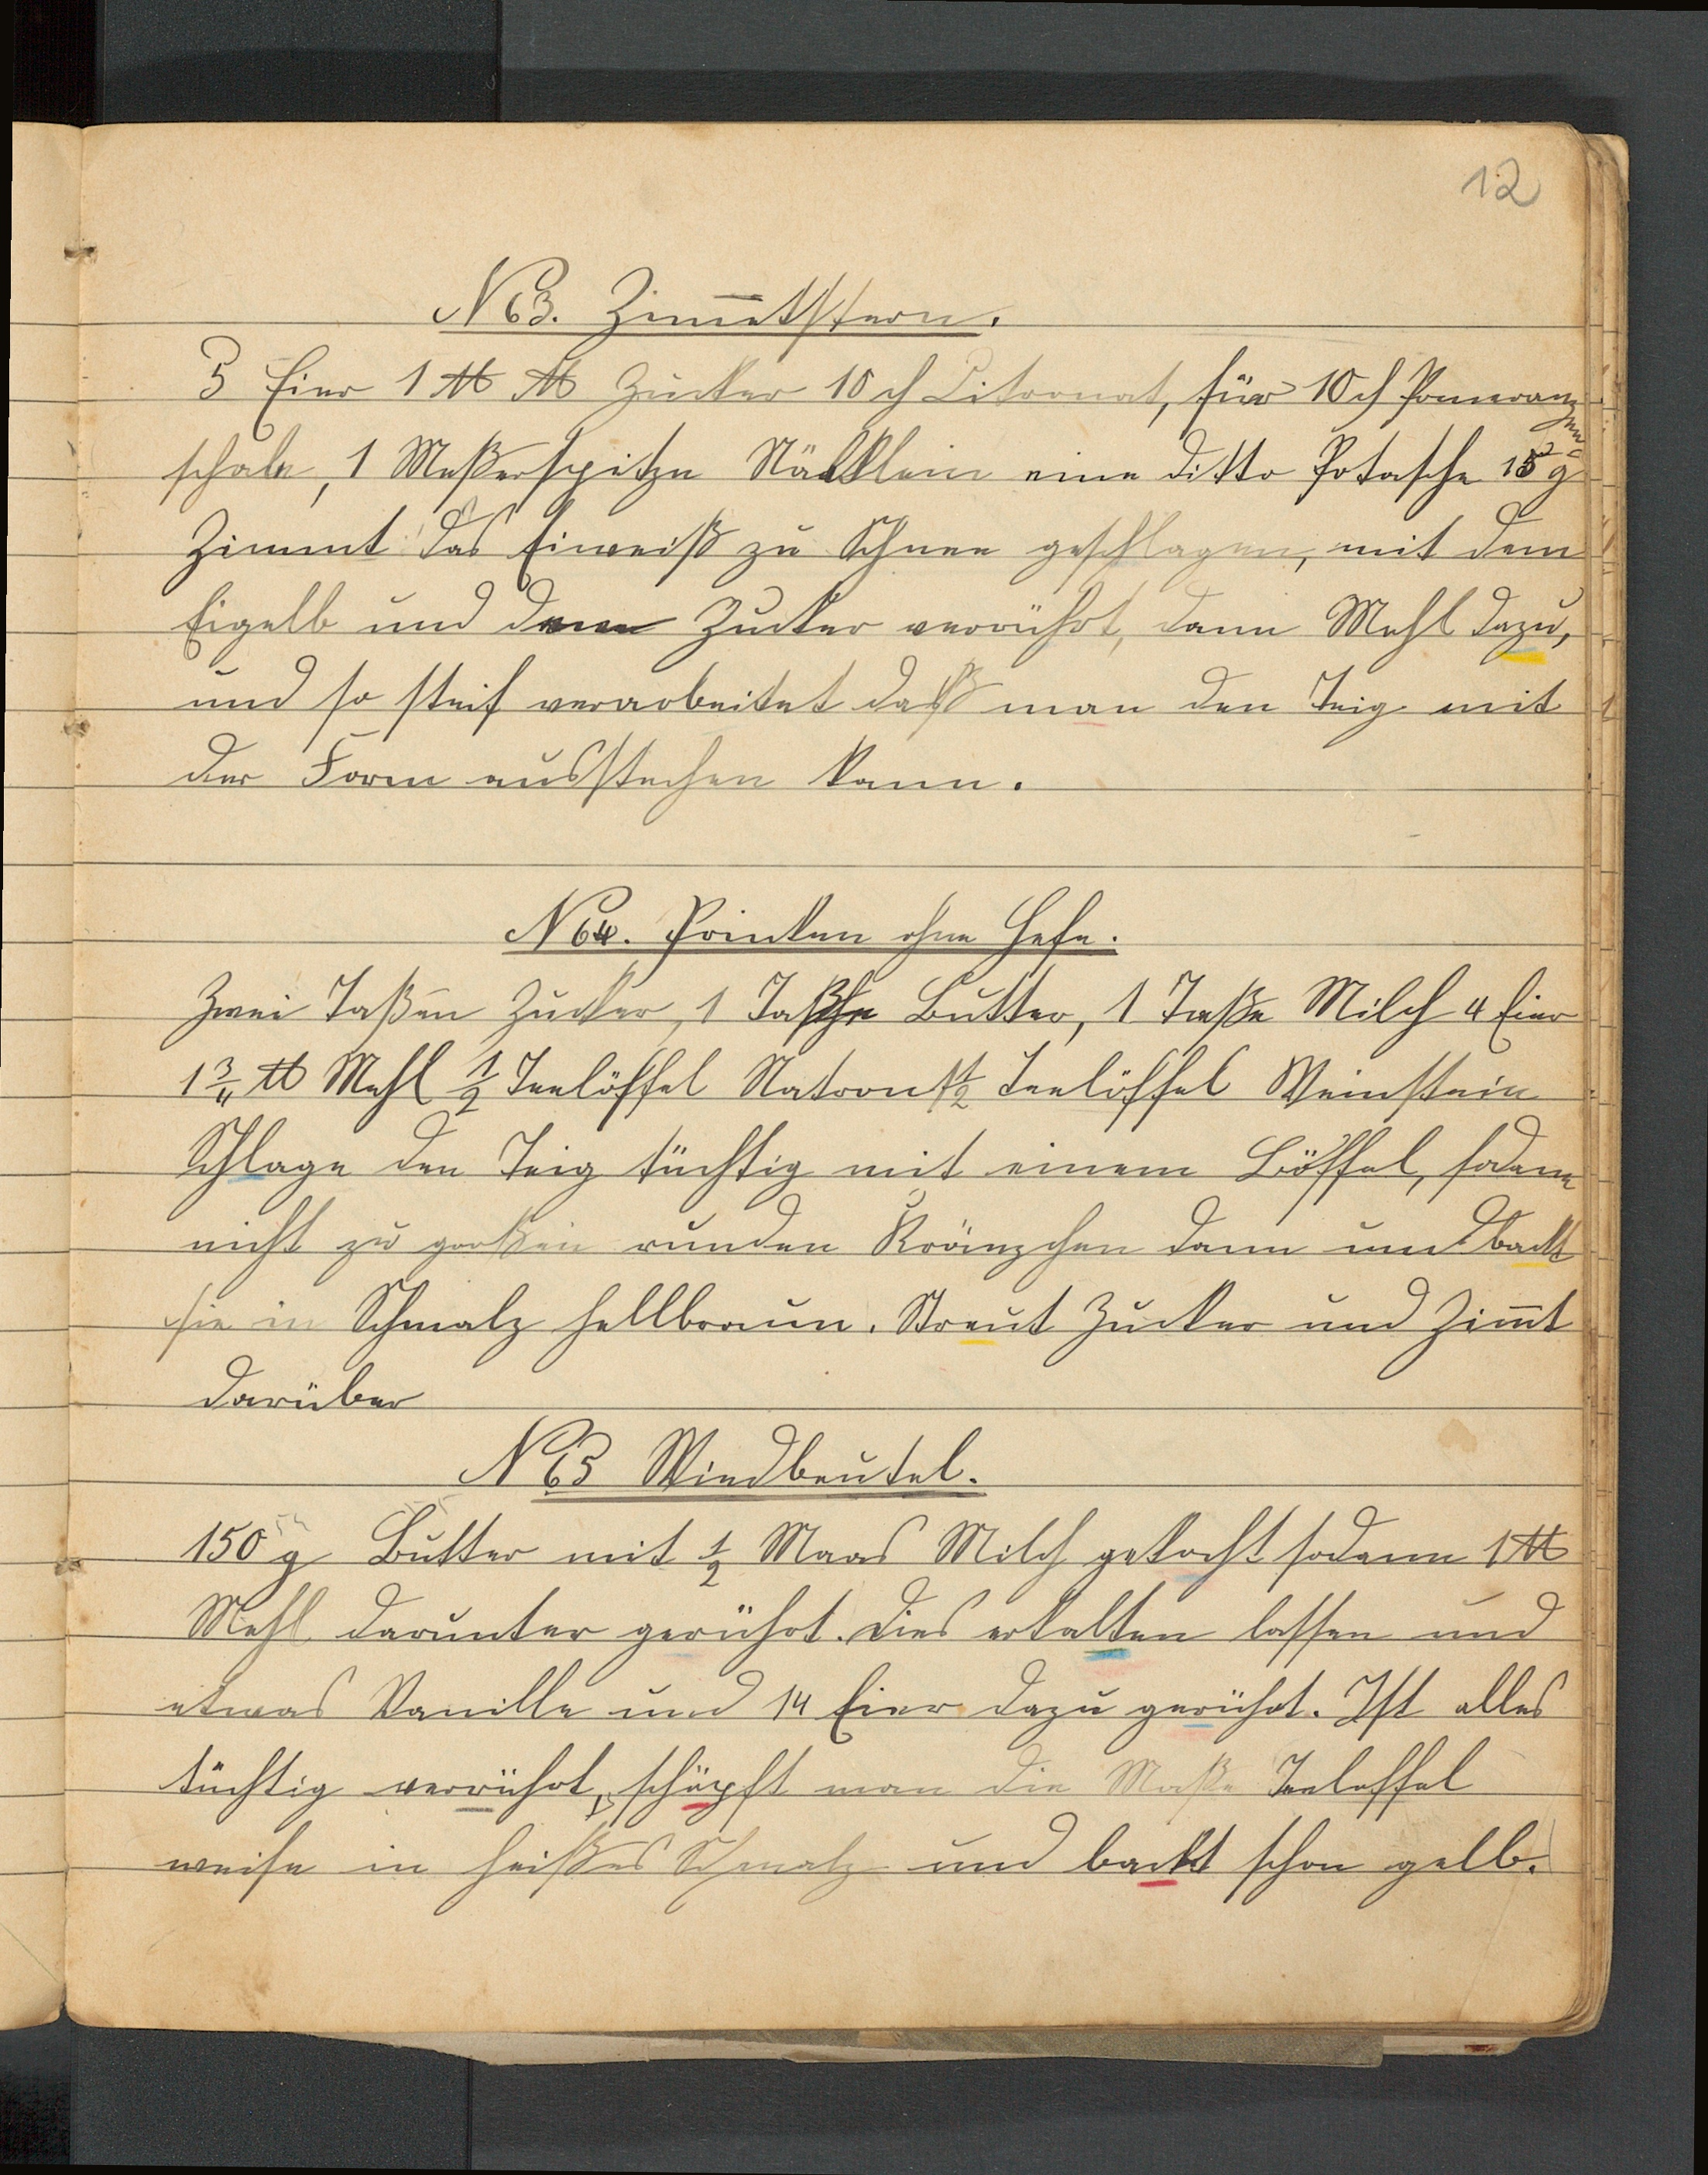 12
N 63. Zim̅etstern.
5 Eier 1 ℔ ℔ Zucker 10 ₰ Citronat, für 10 ₰ Pomeranzen
schale, 1 Meßerspitze Näglein eine ditto Potasche 15 g
Zimmt das Eiweiß zu Schnee geschlagen, mit dem
Eigelb und dem Zucker verrührt, dann Mehl dazu,
und so steif verarbeitet daß man den Teig mit
der Form ausstechen kann.
N 64. Prinken ohne Hefe.
Zwei Taßen Zucker, 1 Taße Butter, 1 Taße Milch 4 Eier
1 3/4 ℔ Mehl 1/2 Teelöffel Natron 1 1/2 Teelöffel Weinstein
Schlage den Teig tüchtig mit einem Löffel, sodann
nicht zu großen runden Kränzchen dann und backt
sie in Schmalz hellbraun. Streut Zucker und Zim̅t
darüber
N 65 Windbeutel.
150 g Butter mit 1/2 Maas Milch gekocht sodann 1 ℔
Mehl darunter gerührt. Dies erkalten lassen und
etwas Vanille und 14 Eier dazu gerührt. Ist alles
tüchtig verrührt, schöpft man die Maße Teeloffel
weise in heißes Schmalz und backt schon gelb.